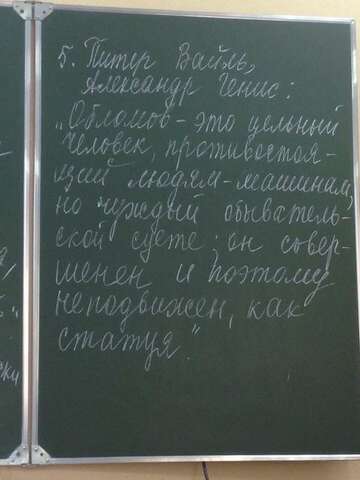 5. Питер Вайль,
Александр Генис:
„Обломов - это цельный
человек, противостоя-
щий людям-машинам,
но чуждый обыватель-
ской суете; он совер-
шенен и поэтому
неподвижен, как
статуя."